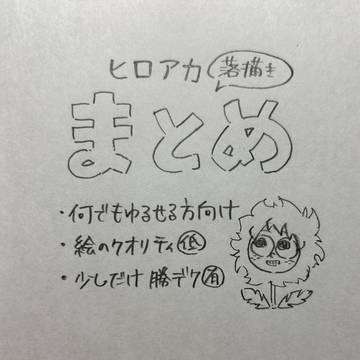 ヒロアカ 落描き
まとめ
・何でもゆるせる方向け
・絵のクオリティ低
・少しだけ勝デク有